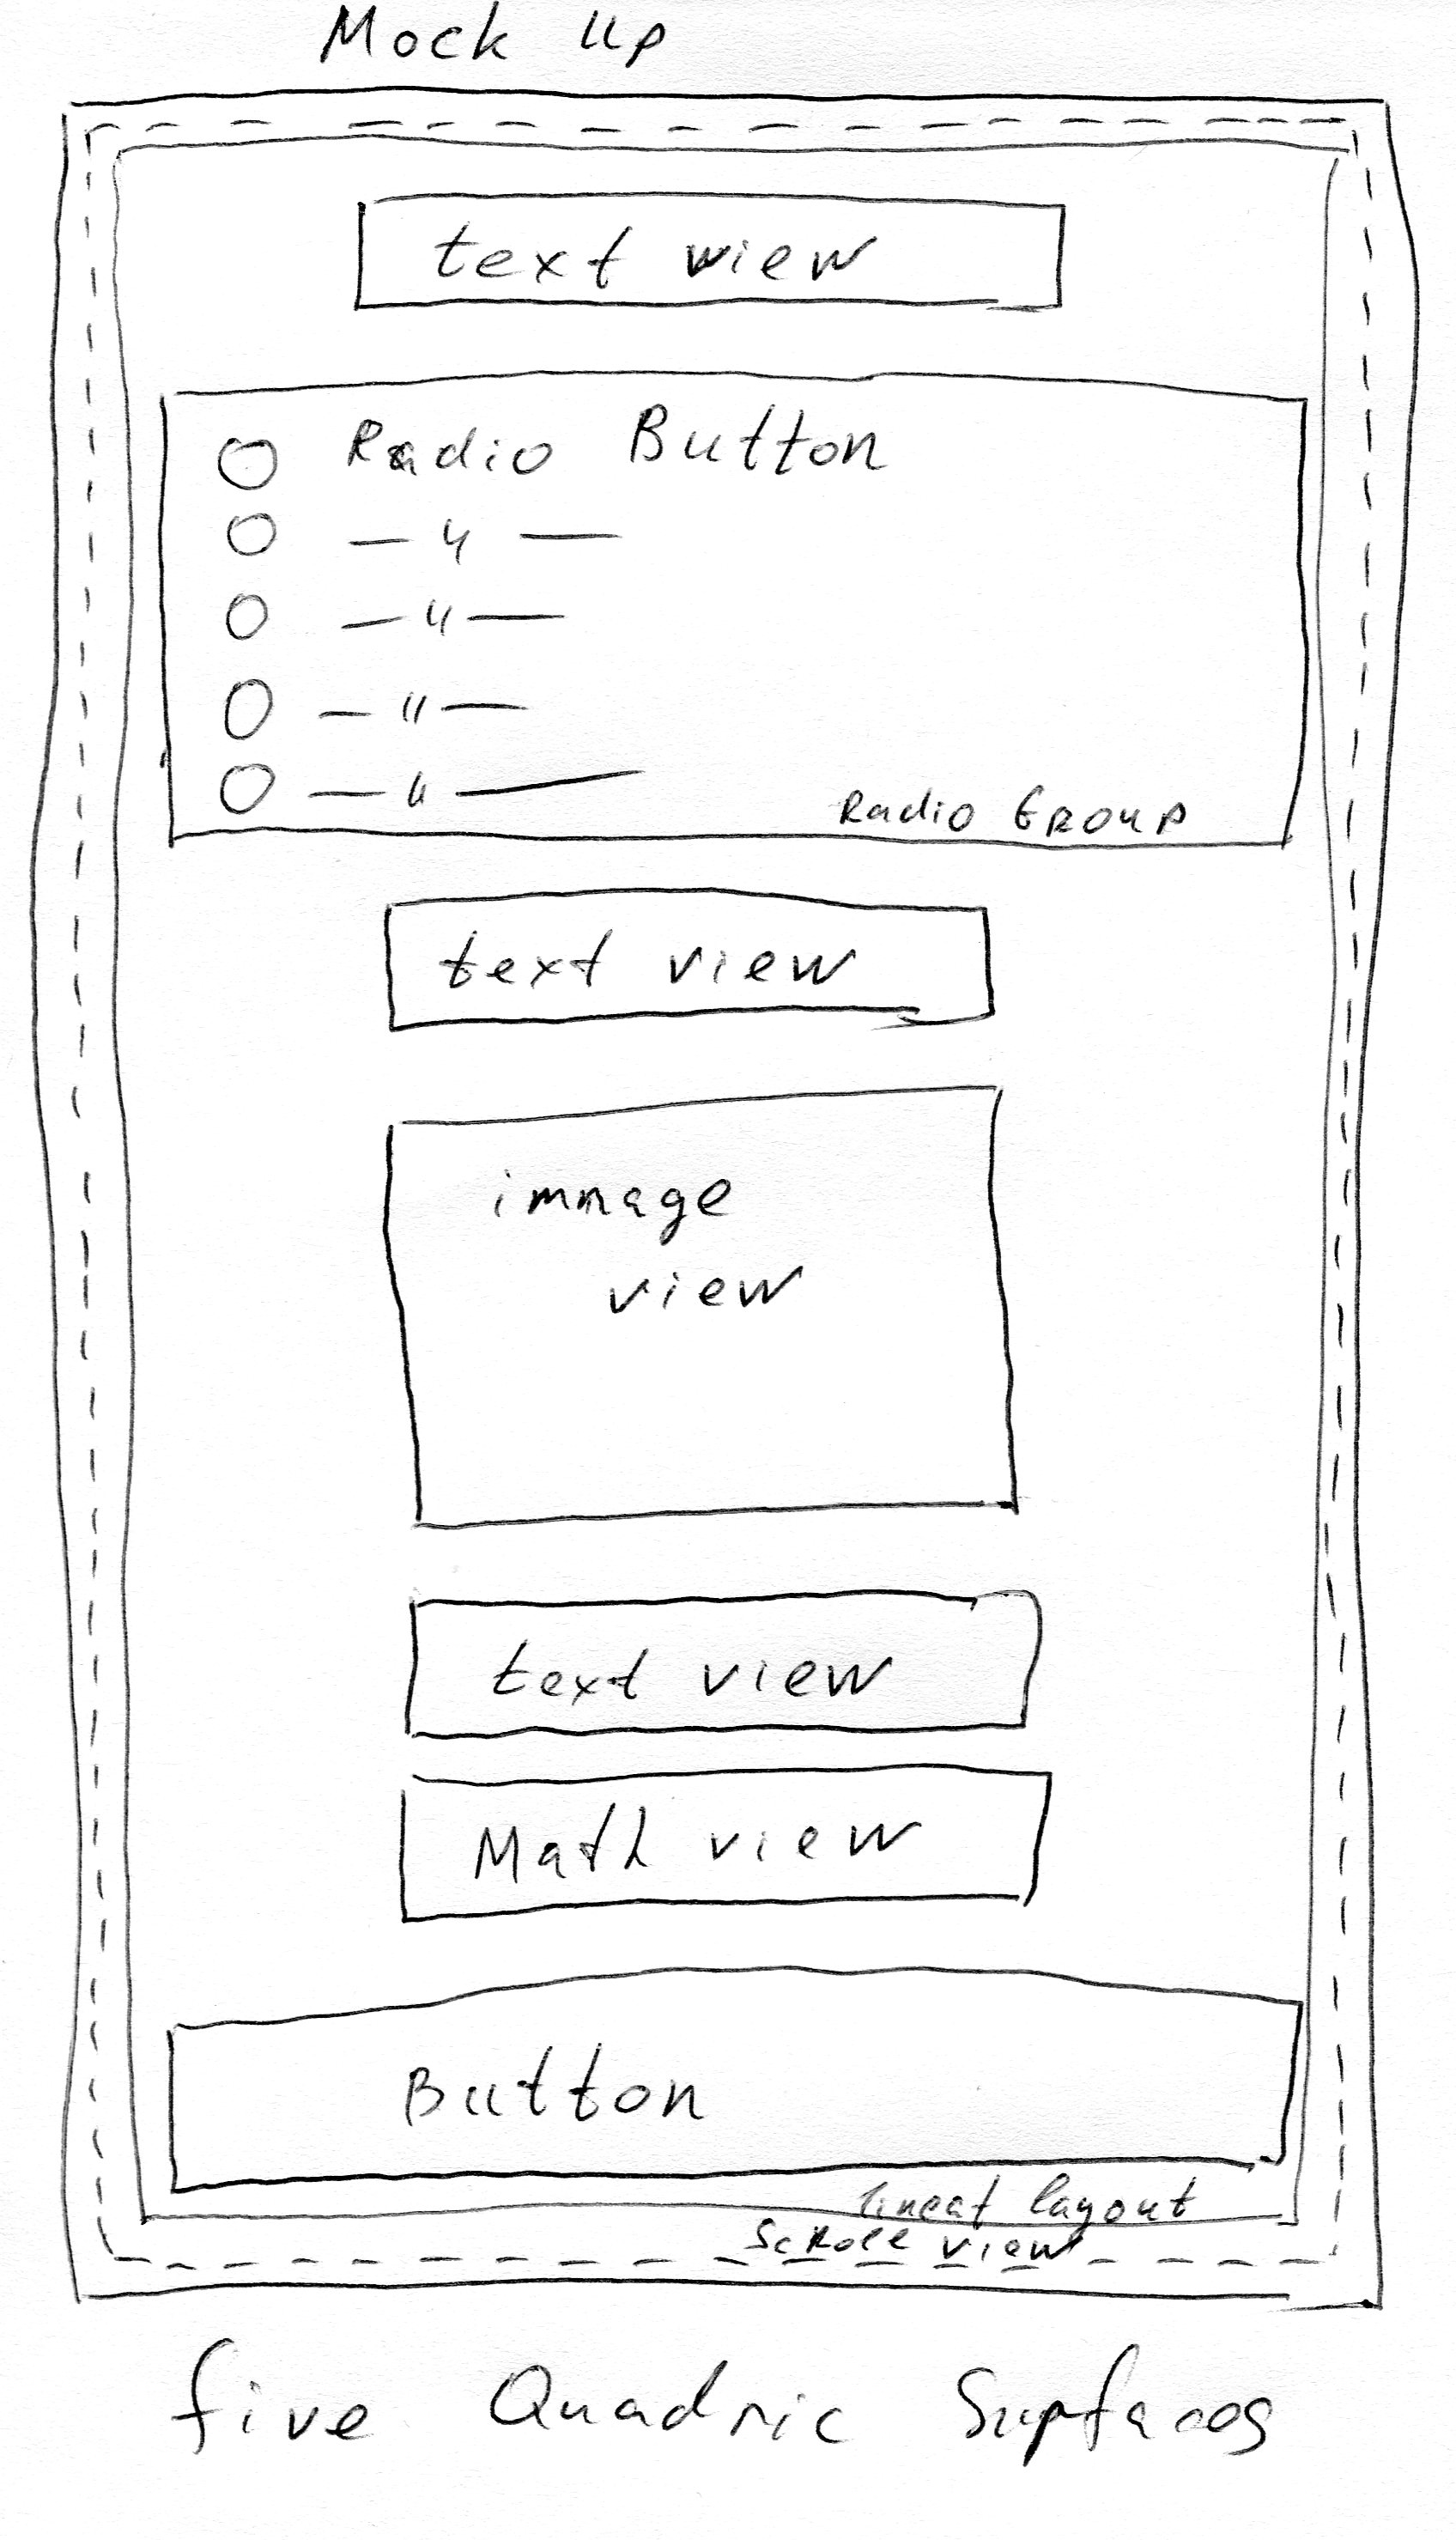 Mock Up
text view
Radio Button
— " —
— " —
— " —
— " —
Radio Group
text view
immage
view
text view
Math view
Button
linear layout
Scroll view
five Quadric Surfaces